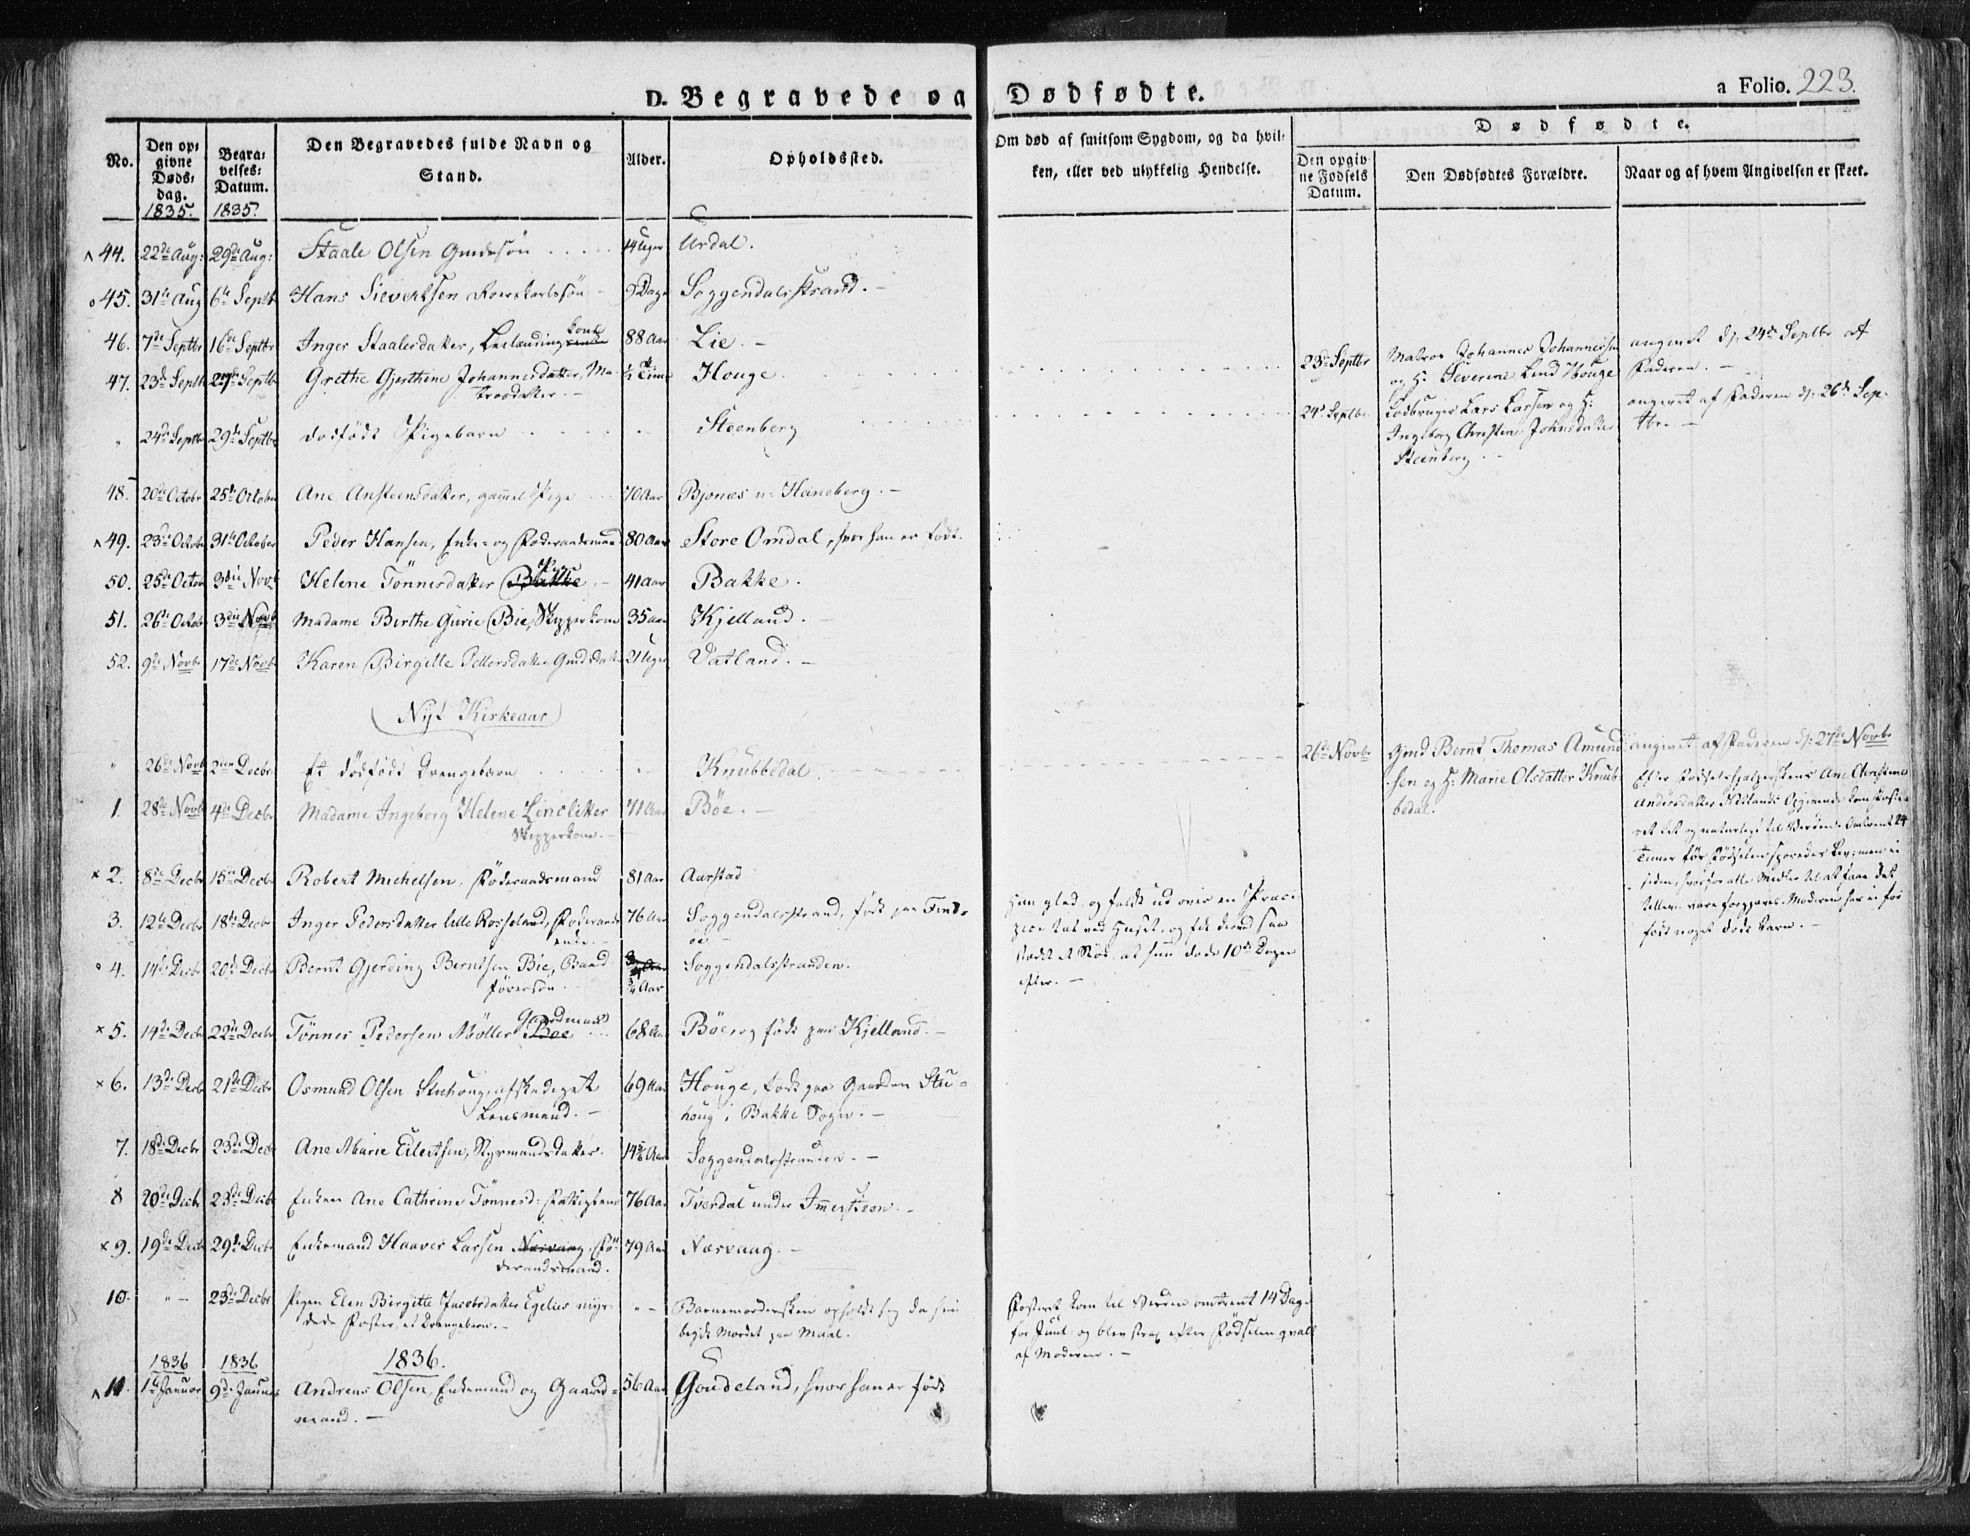 D. Begravede og Dødfødte.
a Folio. 223.
No.
Den opgivne Døds-dag. 1835.
Begravelses-Datum. 1835.
Den Begravedes fulde Navn og Stand.
Alder.
Opholdssted.
Om død af smitsom Sygdom, og da hvilken, eller ved ulykkelig Hendelse.
Dødfødte.
Den opgivne Fødsels Datum.
Den Dødfødtes Forældre.
Naar og af hvem Angivelsen er skeet.
44. 22de Aug: 29de Aug: Staale Olsen Gmdssön 14 Uger Urdal.
45. 31te Aug 6te Septbr Hans Sievertsen 9 Dage Soggendalsstrand. -
46. 7de Septbr 16de Septbr Inger Staalesdatter, kone 88 Aar Lie. -
47. 23de Septbr 27de Septbr Grethe Gjerthine Johannesdatter, Ma-
trosdatter. - ½ Time Houge.
23de Septbr Matros Johannes Johannessen
og H: Severine Lind Houge
angivet d: 24de Septbr af
Faderen. -
" 24de Septbr 29de Septbr dødfödt Pigebarn Steenberg
24de Septbr. Lars Larsen og H:
Ingeborg Christine Johnsdatter
Steenberg
angivet af Faderen d: 26de Sep-
tbr. -
48. 20de Octobr 25de Octobr Ane Ansteensdatter, gammel Pige 70 Aar Bjonæs u: Haneberg. -
49. 23de Octobr 31te October Peder Hansen, Enke- og Föderaadsmand 80 Aar Store Omdal, hvor han er födt.
50. 25de Octbr 3die Novbr Helene Tönnesdatter Bakke Pige 41 Aar Bakke.
51. 26de Octobr 3die Novbr Madame Birthe Gurie Bie, Skipperkone 35 Aar Kjelland. -
52. 9de Novbr 17de Novbr Karen Birgitte Pettersdatter Gmdsdatter 21 Uger Vatland. -
Nyt Kirkeaar
" 26de Novbr 2den Decbr Et dödfödt Drengebarn Knubbedal.
26de Novbr Gmd Bernt Thomas Amund-
sen og H: Marie Olsdatter Knub-
bedal.
angivet af Faderen d: 27de Novbr
Efter Ane Christine
Andersdatter
og naturligt til Verden. Omtrent 24
Timer för Födselen
födt noget dödt Barn. -
1. 28de Novbr 4de Decbr Madame Ingeborg Helene 71 Aar Böe. -
Skipperkone. -
2. 8de Decbr 15de Decbr Robert Michelsen, Föderaadsmand 81 Aar Aarstad
3. 12te Decbr 18de Decbr Inger Pedersdatter lille Rosseland, Föderaads-
enke. - 76 Aar Soggendalsstrand, födt paa Find-
öe -
Hun gled, og faldt ud over en
ved Huset, og fik derved saa
Stöd, at hun döde 10de Dagen
efter. -
4. 14de Decbr 20de Decbr Bernt Gjerding Berntsen Bie, Baad-
förersön ¾ Aar Soggendalsstranden.
5. 14de Decbr 22de Decbr Tönnes Pedersen Möller Gaardmand Böe 68 Aar Böe, og födt paa Kjelland. -
6. 13de Decbr 21de Decbr Osmund Olsen Stuhoug, afskediget
Lensmand. - 69 Aar Houge, födt paa Gaarden Stu-
houg i Bakke Sogn. -
7. 18de Decbr 23de Decbr Ane Marie Eilertsen, Styrmandsdatter. Aar Soggendalsstranden. -
8 20de Decbr 23de Decbr Enken Ane Cathrine Tönnesd: 76 Aar Tverdal under
9. 19de Decbr 29de Decbr Enkemand Haaver Larsen Næsvaag, Fö-
deraadsmand. 79 Aar Næsvaag. -
10. " - 23de Decbr Pigen Elen Birgitte Jacobsdatter Egelies myr-
dede Foster, et Drengebarn. - " - Barnemordersken opholdt sig da hun
begik Mordet paa Maal.
Fosteret kom til Verden omtrent 14 Dage
för Juul og blev strax efter Födselen qvalt
af Moderen. -
1836 1836 1836.
11. 1te Januar 9de Januar Andreas Olsen, Enkemand og Gaard-
mand. - 56 Aar Goudeland, hvor han er födt